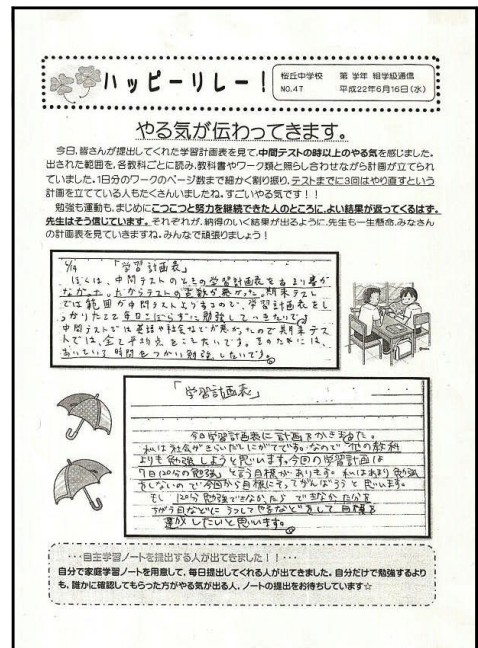 ハッピーリレー！
桜丘中学校　第　学年　組学級通信
NO.47　平成22年6月16日(水)
やる気が伝わってきます。
今日、皆さんが提出してくれた学習計画表を見て、中間テストの時以上のやる気を感じました。
出された範囲を、各教科ごとに読み、教科書やワーク類と照らし合わせながら計画が立てられ
ていました。1日分のワークのページ数まで細かく割り振り、テストまでに3回はやり直すという
計画を立てている人もたくさんいましたね。すごいやる気です！！
勉強も運動も、まじめにこつこつと努力を継続できた人のところに、よい結果が返ってくるはず。
先生はそう信じています。それぞれが、納得のいく結果が出るように、先生も一生懸命、みなさん
の計画表を見ていきますね。みんなで頑張りましょう！
6/14　「学習計画表」
ぼくは、中間テストのときの学習計画表をあまり書か
なかった。だからテストの点数が悪かった。期末テスト
では範囲が中間テストより多いので、学習計画表をし
っかりたてて毎日さぼらずに勉強していきたいです。
中間テストでは英語や社会などが悪かったので期末テス
トでは、全て平均点をこしたいです。そのためには、
時間をつかい勉強したいです。
「学習計画表」
今日学習計画表に計画をかきました。
私は社会がきらいだしにがてです。なので他の教科
よりも勉強しようと思います。今回の学習計画は
「1日120分の勉強」と言う目標があります。私はあまり勉強
をしないので今回から目標にそってがんばろうと思います。
もし120分勉強できなかったらできなかった分を
ちがう日などにうつしてやるなどをして目標を
達成したいと思います。
・・・自主学習ノートを提出する人が出てきました！！・・・
自分で家庭学習ノートを用意して、毎日提出してくれる人が出てきました。自分だけで勉強するより
も、誰かに確認してもらった方がやる気が出る人、ノートの提出をお待ちしています☆